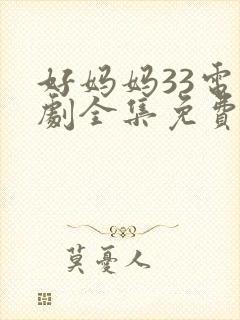 好妈妈33電
劇全集免費
莫憂人